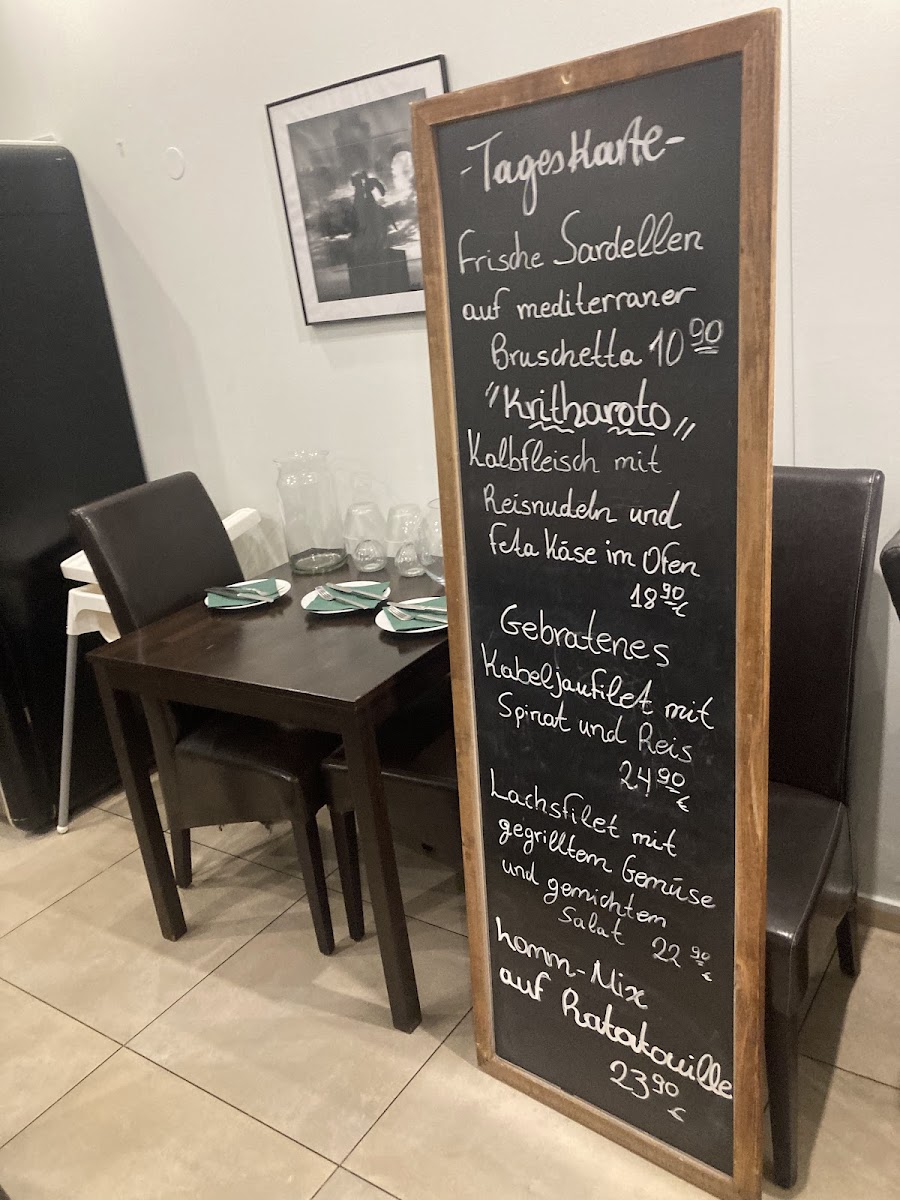 -Tageskarte-
Frische Sardellen
auf mediterraner
Bruschetta 10 90
"Kritharoto"
Kalbfleisch mit
Reisnudeln und
feta Käse im Ofen
18 90 €
Gebratenes
Kabeljaufilet mit
Spinat und Reis
24 90 €
Lachsfilet mit
gegrilltem Gemüse
und gemichtem
Salat 22 90 €
Lamm-Mix
auf Ratatouille
23 90 €